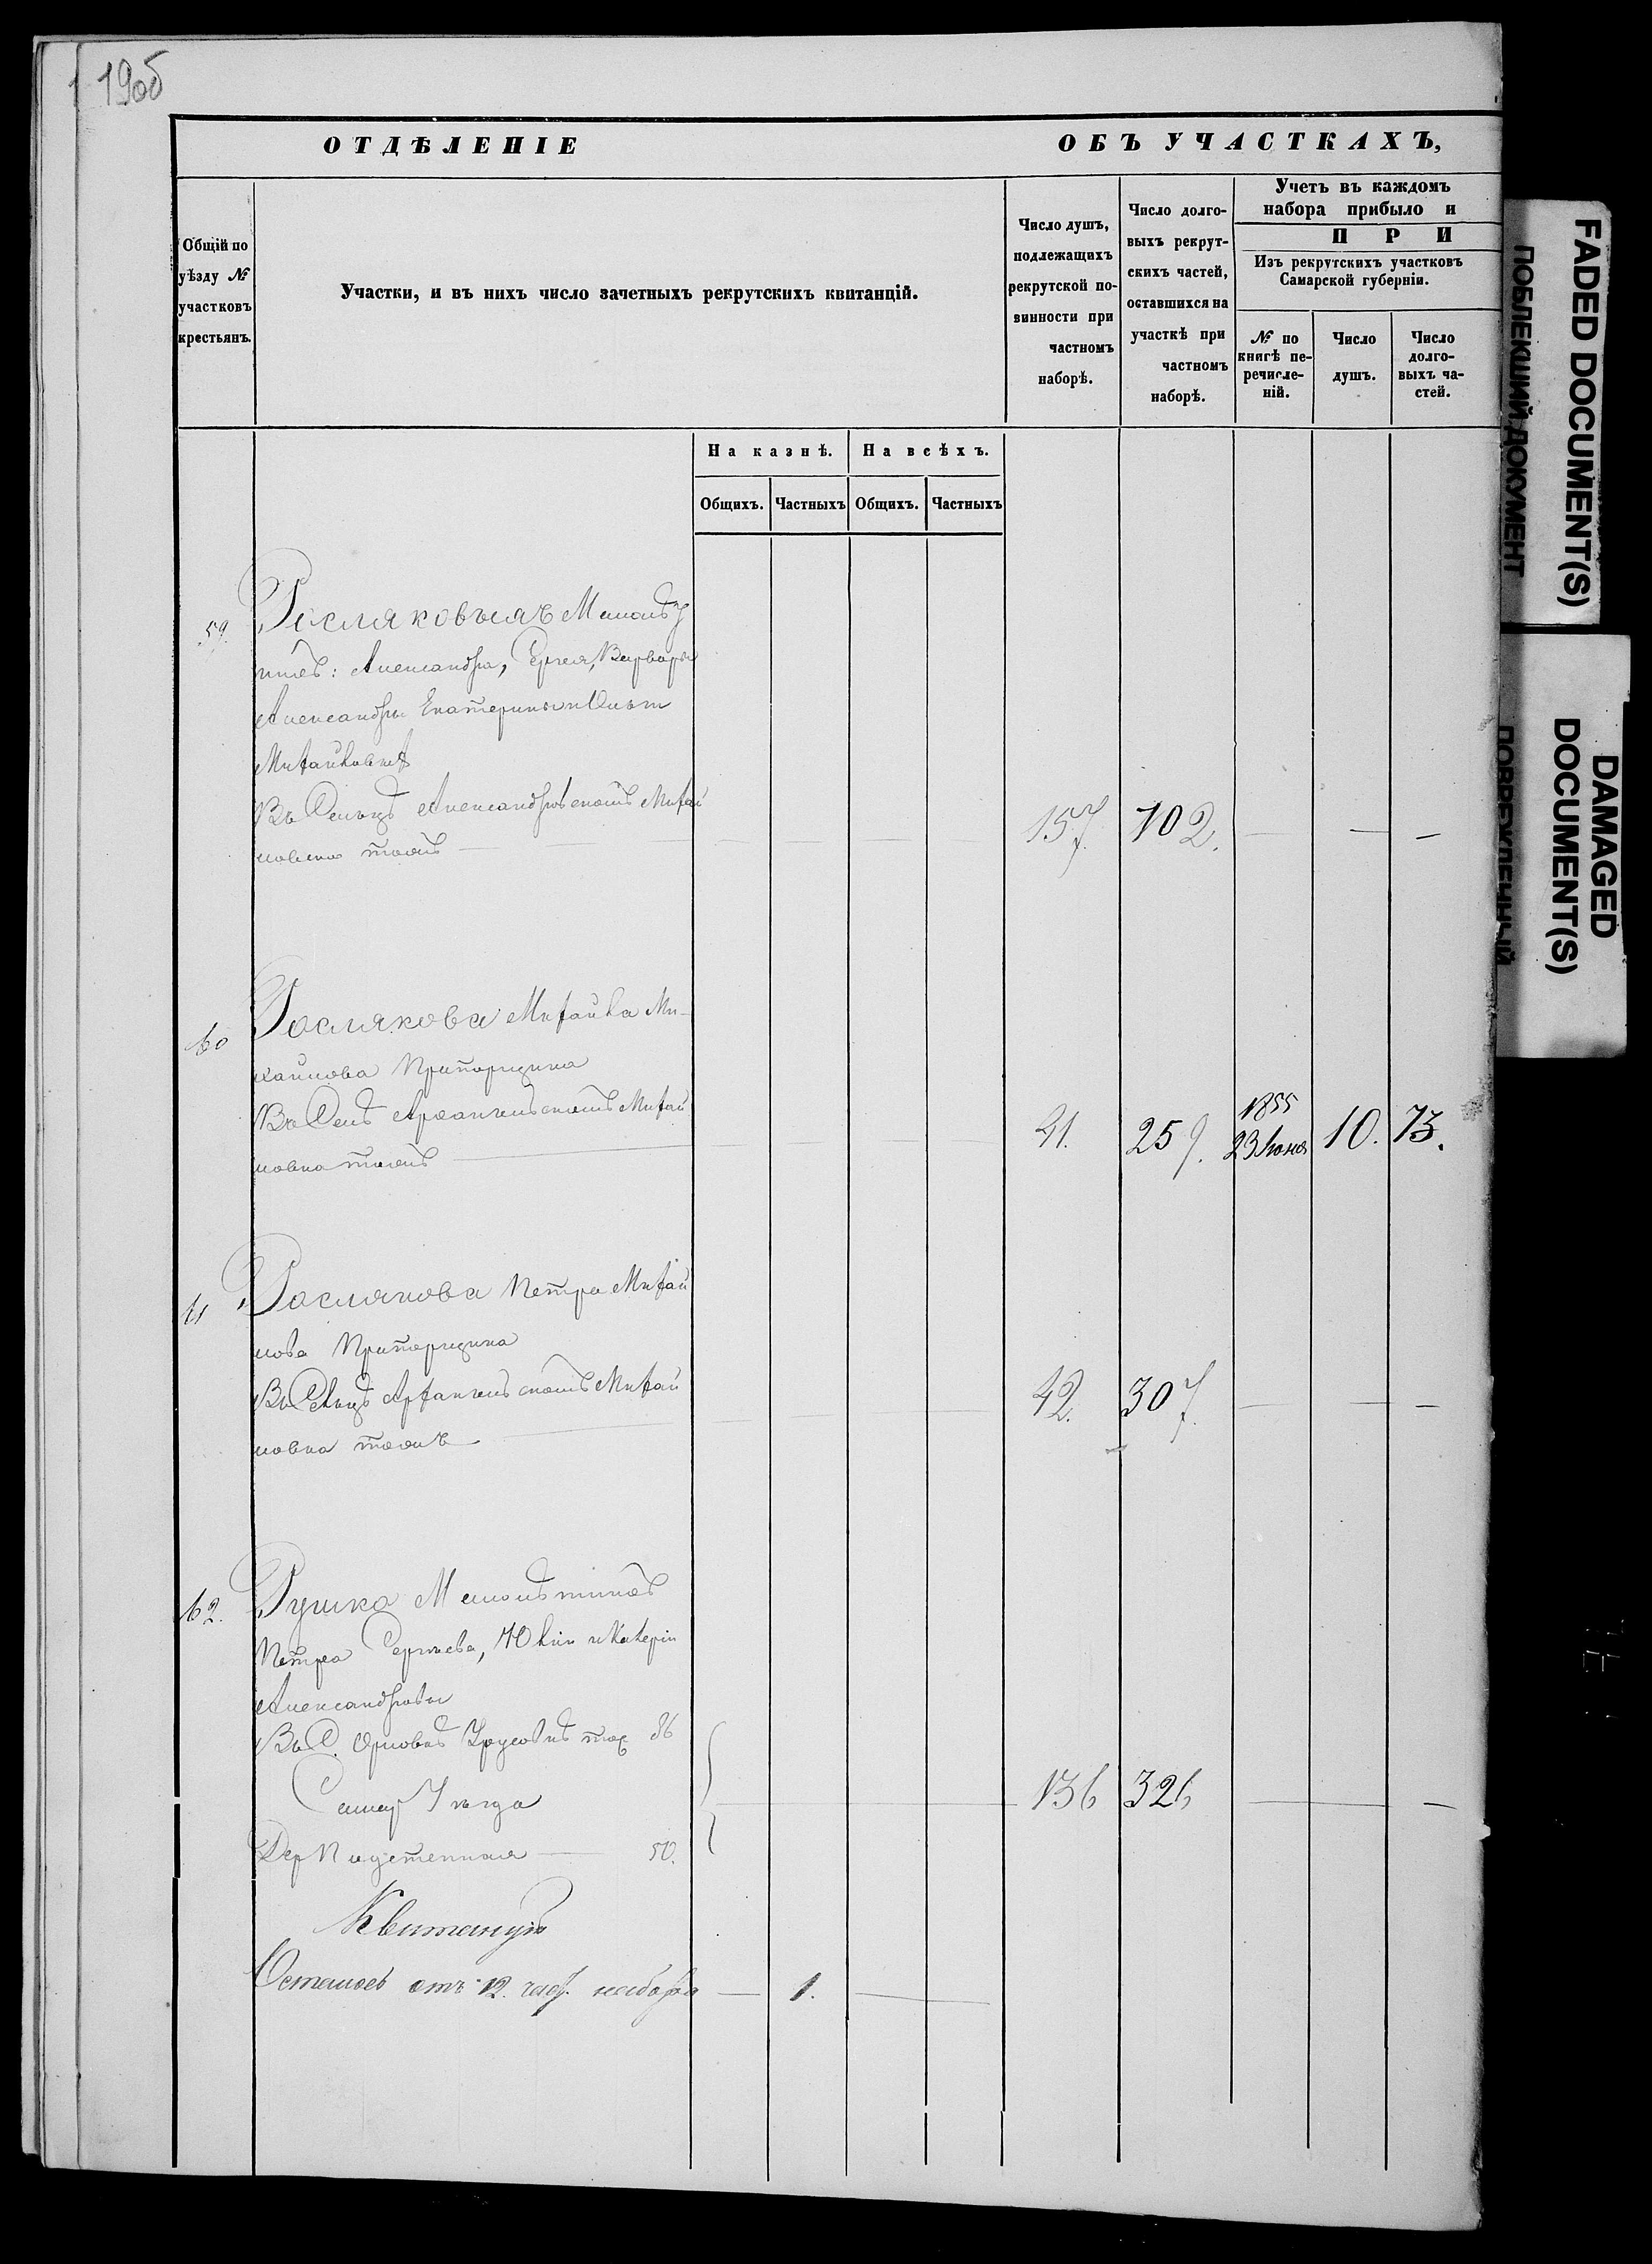 190б
ОТДѢЛЕНІЕ ОБЪ УЧАСТКАХЪ,
Общій по уѣзду № участковъ крестьянъ.
Участки, и въ нихъ число зачетныхъ рекрутскихъ квитанцій.
Число душъ, подлежащихъ рекрутской повинности при частномъ наборѣ.
Число долговыхъ рекрутскихъ частей, оставшихся на участкѣ при частномъ наборѣ.
Учетъ въ каждомъ
набора прибыло и
ПРИ
Изъ рекрутскихъ участковъ
Самарской губерніи.
№ по книгѣ перечисленій.
Число душъ.
Число долговыхъ частей.
На казнѣ. На всѣхъ.
Общихъ. Частныхъ Общихъ. Частныхъ
59. Росляковыхъ Малолѣт
нихъ: Александра, Сергея, Варвары
Александры Екатерины и
Михайловыхъ
Въ Сельцѣ Александровскомъ Михай
ловка тожъ 157. 102. — — —
60 Рослякова Михайла Ми-
хайлова Прапорщика
Въ Селѣ Архангельскомъ Михай
ловка тожъ 41. 259. 1855 23 Іюня 10. 73.
61 Рослякова Петра Михай
лова Прапорщика
Въ Сельцѣ Архангельскомъ Михай
ловка тожъ 42. 307. — — —
62. Рушка Малолѣтнихъ
Петра Сергѣева, Юліи и Валеріи
Александровы
Въ С. Орловкѣ тож 86
Самар Уѣзда 136 326 — —
Дер 50.
Квитанція
Осталось отъ 12. част. набора — 1. —
FADED DOCUMENT(S)
ПОБЛЕКШИЙ ДОКУМЕНТ
DAMAGED
DOCUMENT(S)
ПОВРЕЖДЕННЫЙ